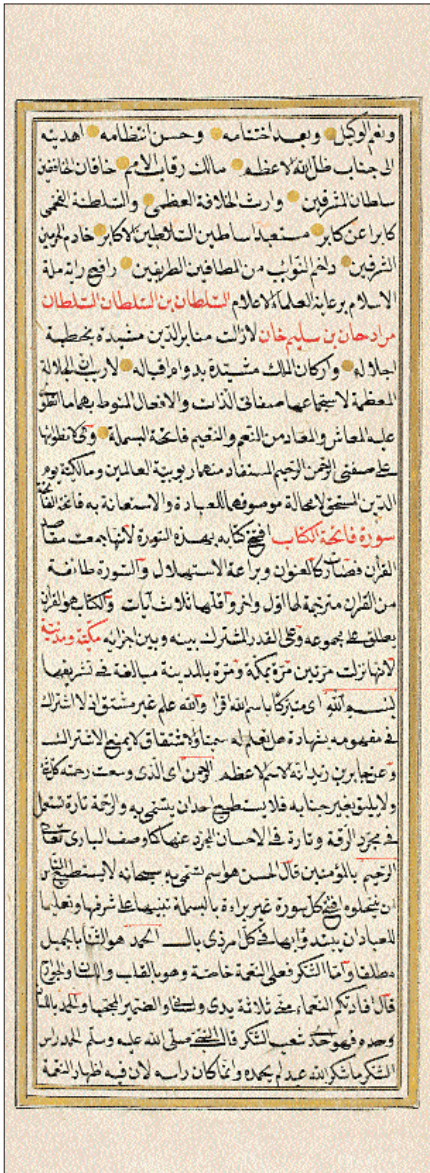 ونعم الوكيل وبعد اختتامه وحسن انتظامه اهديته
الى جناب ظل الله الاعظم مالك رقاب الامم خاقان الخافقين
سلطان المشرقين وارث الخلافة العظمى والسلطنة الفخمى
كابرا عن كابر مستعبد اساطين السلاطين الاكابر خادم الحرمين
الشريفين داخر الثواب من المطافين الطريفين رافع راية ملة
الاسلام برعاية العلماء الاعلام السلطان بن السلطان السلطان
مراد خان بن سليم خان لازالت منابر الدين مشيدة بخطبة
اجلاله واركان الملك مشيدة بدوام اقباله لارب ان الجلالة
المعظمة لاستجماعها صفاتي الذات والافعال المنوط بهما
عليه المعاش والمعاد من النعم والنعيم فاتحة البسملة
على صفتي الرحمن الرحيم المستفاد منهما ربوبية العالمين ومالكية يوم
الدين المستحق لا محالة موصوفهما للعبادة والاستعانة به فاتحة
سورة فاتحة الكتاب افتتح كتابه بهذه السورة لانها جمعت مقاصد
القرآن فصارت كالعنوان وبراعة الاستهلال والسورة طائفة
من القران مترجمة لها اول واخر واقلها ثلاث آيات والكتاب هو القران
يطلق على مجموعه وعلى القدر المشترك بينه وبين اجزائه مكية ومدنية
لانها نزلت مرتين مرة بمكة ومرة بالمدينة مبالغة في تشريفها
بسم الله اي متبركا باسم الله اقرا والله علم غير مشتق اذ لا اشتراك
في مفهومه بشهادة هل تعلم له سميا ولا اشتقاق لا يمنع الاشتراك
وعن جابر بن زيد انه الاسم الاعظم الرحمن اي الذي وسعت رحمته كل
ولا يليق بغير جنابه فلا يستطيع احد ان يتسمى به والرحمة تارة تستعمل
في مجرد الرقة وتارة في الاحسان المجرد عنها كما وصف البارى تعالى
الرحيم بالمؤمنين قال الحسن هو اسم تسمى به سبحانه لا يستطيع الناس
ان ينتحلوه افتتح كل سورة غير براءة بالبسملة تنبيها على شرفها وتعليما
للعباد ان يبتدؤا بها في كل امر ذى بال الحمد هو الثناء بالجميل
مطلقا واما الشكر فعلى النعمة خاصة وهو بالقلب واللسان والجوارح
قال افادتكم النعماء مني ثلاثة يدى ولساني والضمير المحجبا والحمد باللسان
وحده فهو احدى شعب الشكر قال النبي صلى الله عليه وسلم الحمد راس
الشكر ما شكر الله عبد لم يحمده وانما كان راسه لان فيه اظهار النعمة